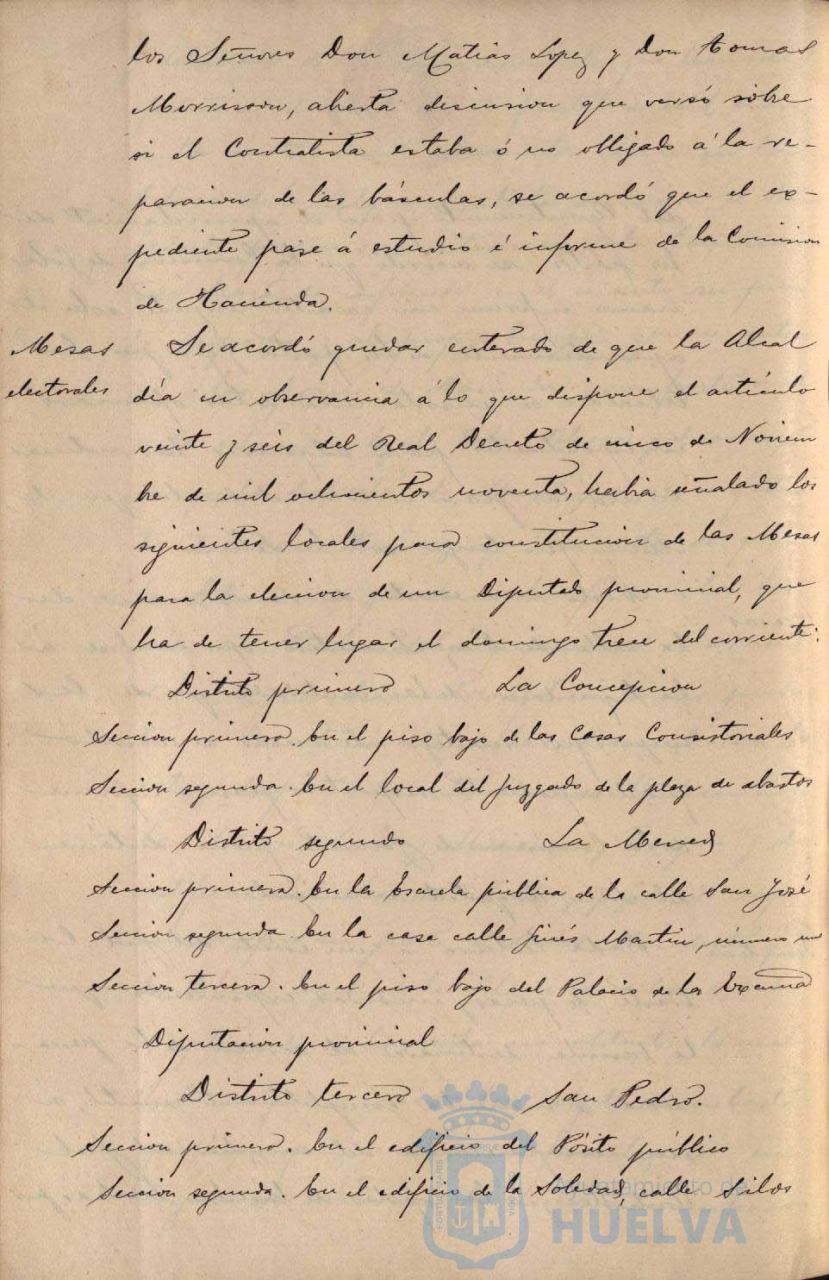 los Señores Don Matias Lopez y Don Tomas
Morrisson, abierta discusion que versó sobre
si el Contratista estaba ó no obligado á la re-
paracion de las básculas, se acordó que el ex-
pediente pase á estudio é informe de la Comision
de Hacienda.
Mesas
electorales
Se acordó quedar enterado de que la Alcal
día en observancia á lo que dispone el artículo
veinte y seis del Real Decreto de cinco de Noviem
bre de mil ochocientos noventa, habia señalado los
siguientes locales para constitucion de las Mesas
para la eleccion de un Diputado provincial, que
ha de tener lugar el domingo trece del corriente:
Distrito primero La Concepcion
Seccion primera. En el piso bajo de las Casas Consistoriales
Seccion segunda. En el local del Juzgado de la plaza de abastos
Distrito segundo La Merced
Seccion primera. En la Escuela pública de la calle San José
Seccion segunda En la casa calle Ginés Martin, número uno
Seccion tercera. En el piso bajo del Palacio de la Excma
Diputacion provincial
Distrito tercero San Pedro.
Seccion primera. En el edificio del Pósito público
Seccion segunda. En el edificio de la Soledad, calle Silos
Ayuntamiento de
HUELVA